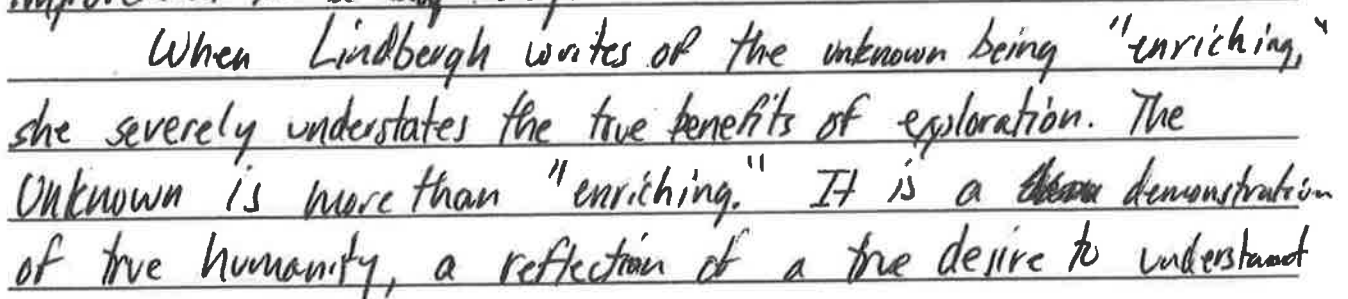 When Lindbergh writes of the unknown being "enriching,"
she severely understates the true benefits of exploration. The
Unknown is more than "enriching." It is a demonstration
of true humanity, a reflection of a true desire to understand